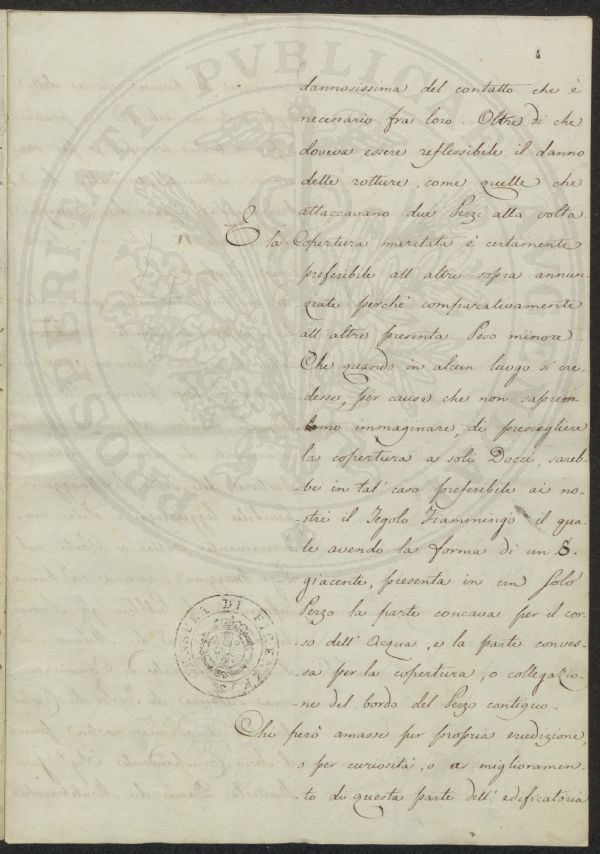 4
dannosissima del contatto che è
necessario fra loro. Oltre di che
doveva essere reflessibile il danno
delle rotture, come quelle che
attaccavano due Pezzi alla volta.
E la Copertura maritata è certamente
preferibile all'altre sopra annun-
ziate perchè comparativamente
all'altre presenta Peso minore.
Che quando in alcun luogo si cre-
desse, per cause che non saprem
lomo immaginare, di prescegliere
la copertura a soli Docci, sareb-
-be in tal' caso preferibile ai no-
-stri il Tegolo Fiammingo il qua-
-le avendo la forma di un S.
giacente, presenta in un Solo
Pezzo la parte concava per il cor-
so dell'Acqua, e la parte conves-
sa per la copertura, o collegazio-
-ne del bordo del Pezzo contiguo.
Chi però amasse per propria erudizione,
o per curiosità, o a miglioramen-
-to di questa parte dell'edificatoria
PROSPERITATI PVBLICAE
CENSURA DI FIRENZE